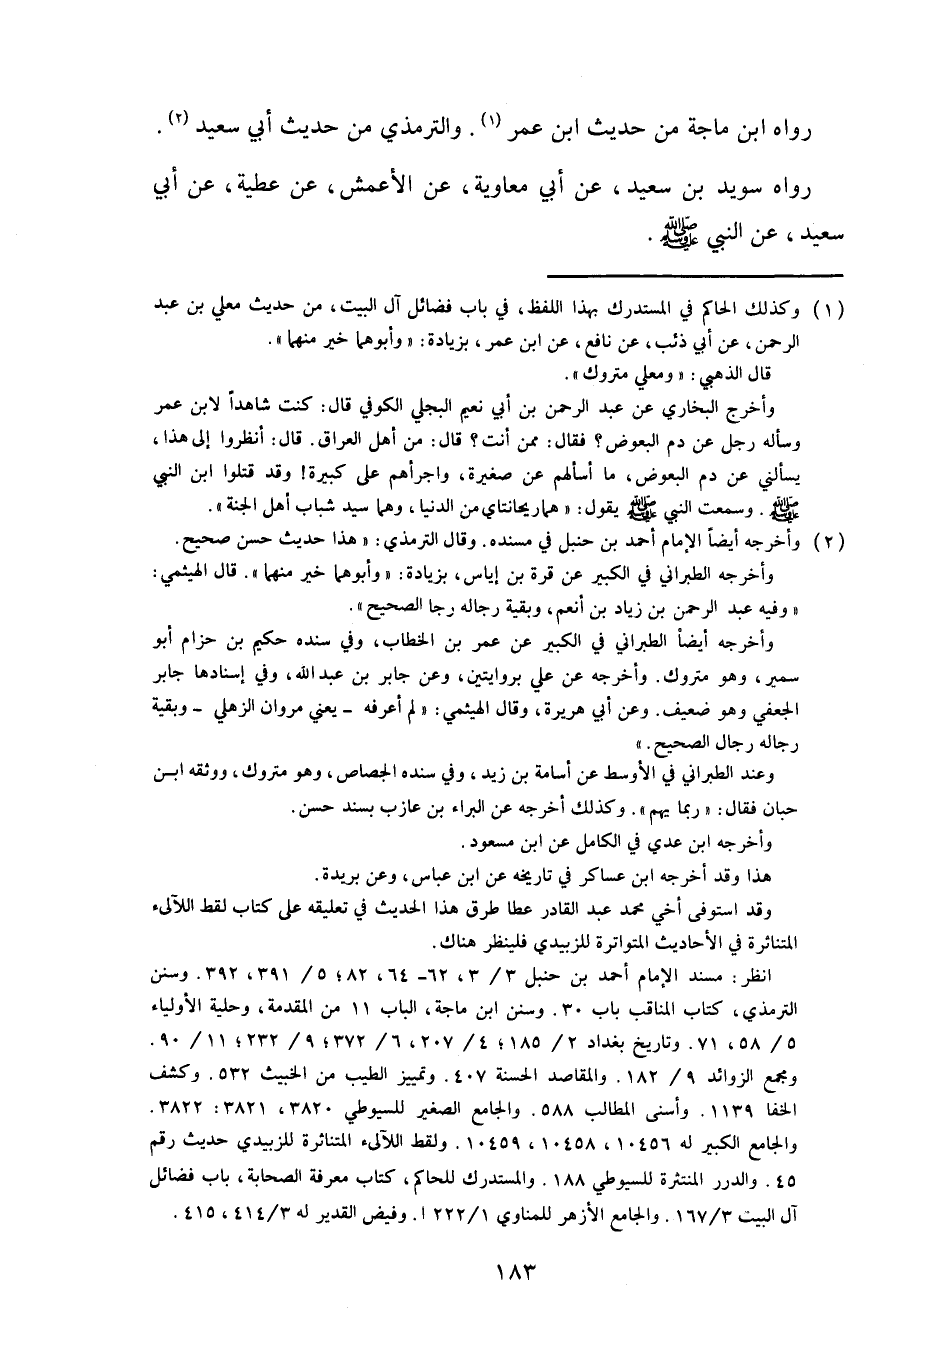 رواه ابن ماجة من حديث ابن عمر (١) . والترمذي من حديث أبي سعيد (٢) .
رواه سويد بن سعيد ، عن أبي معاوية ، عن الأعمش ، عن عطية ، عن أبي
سعيد ، عن النبي ﷺ .
(١) وكذلك الحاكم في المستدرك بهذا اللفظ ، في باب فضائل آل البيت ، من حديث معلي بن عبد
الرحمن ، عن أبي ذئب ، عن نافع ، عن ابن عمر ، بزيادة : « وأبوهما خير منهما » .
قال الذهبي : « ومعلي متروك » .
وأخرج البخاري عن عبد الرحمن بن أبي نعيم البجلي الكوفي قال : كنت شاهداً لابن عمر
وسأله رجل عن دم البعوض ؟ فقال : ممن أنت ؟ قال : من أهل العراق . قال : أنظروا إلى هذا ،
يسألني عن دم البعوض ، ما أسألهم عن صغيرة ، واجرأهم على كبيرة ! وقد قتلوا ابن النبي
ﷺ . وسمعت النبي ﷺ يقول : « هما ريحانتاي من الدنيا ، وهما سيد شباب أهل الجنة » .
(٢) وأخرجه أيضاً الإمام أحمد بن حنبل في مسنده . وقال الترمذي : « هذا حديث حسن صحيح .
وأخرجه الطبراني في الكبير عن قرة بن إياس ، بزيادة : « وأبوهما خير منهما » . قال الهيثمي :
« وفيه عبد الرحمن بن زياد بن أنعم ، وبقية رجاله رجا الصحيح » .
وأخرجه أيضاً الطبراني في الكبير عن عمر بن الخطاب ، وفي سنده حكيم بن حزام أبو
سمير ، وهو متروك . وأخرجه عن علي بروايتين ، وعن جابر بن عبد الله ، وفي إسنادها جابر
الجعفي وهو ضعيف . وعن أبي هريرة ، وقال الهيثمي : « لم أعرفه - يعني مروان الزهلي - وبقية
رجاله رجال الصحيح . »
وعند الطبراني في الأوسط عن أسامة بن زيد ، وفي سنده الجصاص ، وهو متروك ، ووثقه ابن
حبان فقال : « ربما يهم » . وكذلك أخرجه عن البراء بن عازب بسند حسن .
وأخرجه ابن عدي في الكامل عن ابن مسعود .
هذا وقد أخرجه ابن عساكر في تاريخه عن ابن عباس ، وعن بريدة .
وقد استوفى أخي محمد عبد القادر عطا طرق هذا الحديث في تعليقه على كتاب لقط اللآلىء
المتناثرة في الأحاديث المتواترة للزبيدي فلينظر هناك .
انظر : مسند الإمام أحمد بن حنبل ٣ / ٣ ، ٦٢ - ٦٤ ، ٨٢ ؛ ٥ / ٣٩١ ، ٣٩٢ . وسنن
الترمذي ، كتاب المناقب باب ٣٠ . وسنن ابن ماجة ، الباب ١١ من المقدمة ، وحلية الأولياء
٥ / ٥٨ ، ٧١ . وتاريخ بغداد ٢ / ١٨٥ ؛ ٤ / ٢٠٧ ، ٦ / ٣٧٢ ؛ ٩ / ٢٣٢ ؛ ١١ / ٩٠ .
ومجمع الزوائد ٩ / ١٨٢ . والمقاصد الحسنة ٤٠٧ . وتمييز الطيب من الخبيث ٥٣٢ . وكشف
الخفا ١١٣٩ . وأسنى المطالب ٥٨٨ . والجامع الصغير للسيوطي ٣٨٢٠ ، ٣٨٢١ : ٣٨٢٢ .
والجامع الكبير له ١٠٤٥٦ ، ١٠٤٥٨ ، ١٠٤٥٩ . ولقط اللآلىء المتناثرة للزبيدي حديث رقم
٤٥ . والدرر المنتثرة للسيوطي ١٨٨ . والمستدرك للحاكم ، كتاب معرفة الصحابة ، باب فضائل
آل البيت ١٦٧/٣ . والجامع الأزهر للمناوي ٢٢٢/١ ا . وفيض القدير له ٤١٤/٣ ، ٤١٥ .
١٨٣